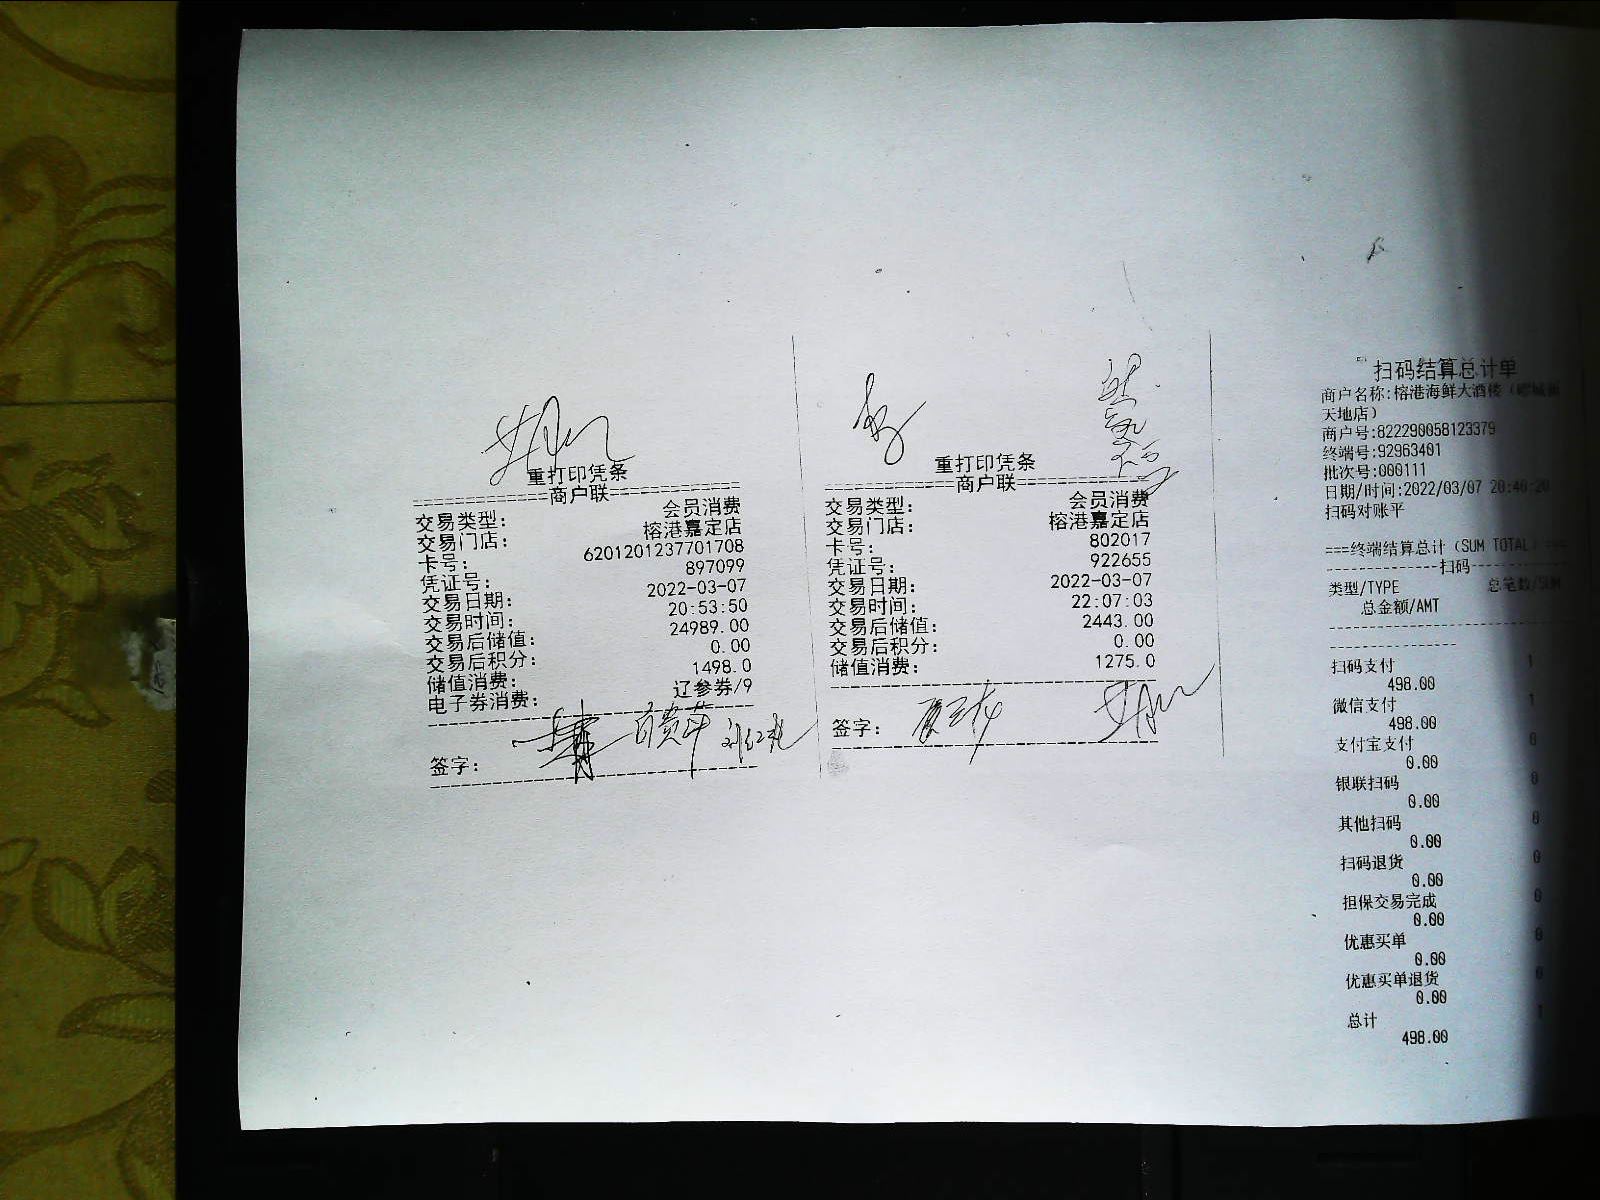 重打印凭条
==========商户联==========
交易类型: 会员消费
交易门店: 榕港嘉定店
卡号: 6201201237701708
凭证号: 897099
交易日期: 2022-03-07
交易时间: 20:53:50
交易后储值: 24989.00
交易后积分: 0.00
储值消费: 1498.0
电子券消费: 辽参券/9
签字:
重打印凭条
==========商户联==========
交易类型: 会员消费
交易门店: 榕港嘉定店
卡号: 802017
凭证号: 922655
交易日期: 2022-03-07
交易时间: 22:07:03
交易后储值: 2443.00
交易后积分: 0.00
储值消费: 1275.0
签字:
扫码结算总计单
商户名称:榕港海鲜大酒楼（嘐城新
天地店）
商户号:822290058123379
终端号:92963401
批次号:000111
日期/时间:2022/03/07 20:40:20
扫码对账平
===终端结算总计（SUM TOTAL）===
扫码
类型/TYPE 总笔数/SUM
总金额/AMT
扫码支付 1
498.00
微信支付 1
498.00
支付宝支付 0
0.00
银联扫码 0
0.00
其他扫码 0
0.00
扫码退货 0
0.00
担保交易完成 0
0.00
优惠买单 0
0.00
优惠买单退货 0
0.00
总计 1
498.00